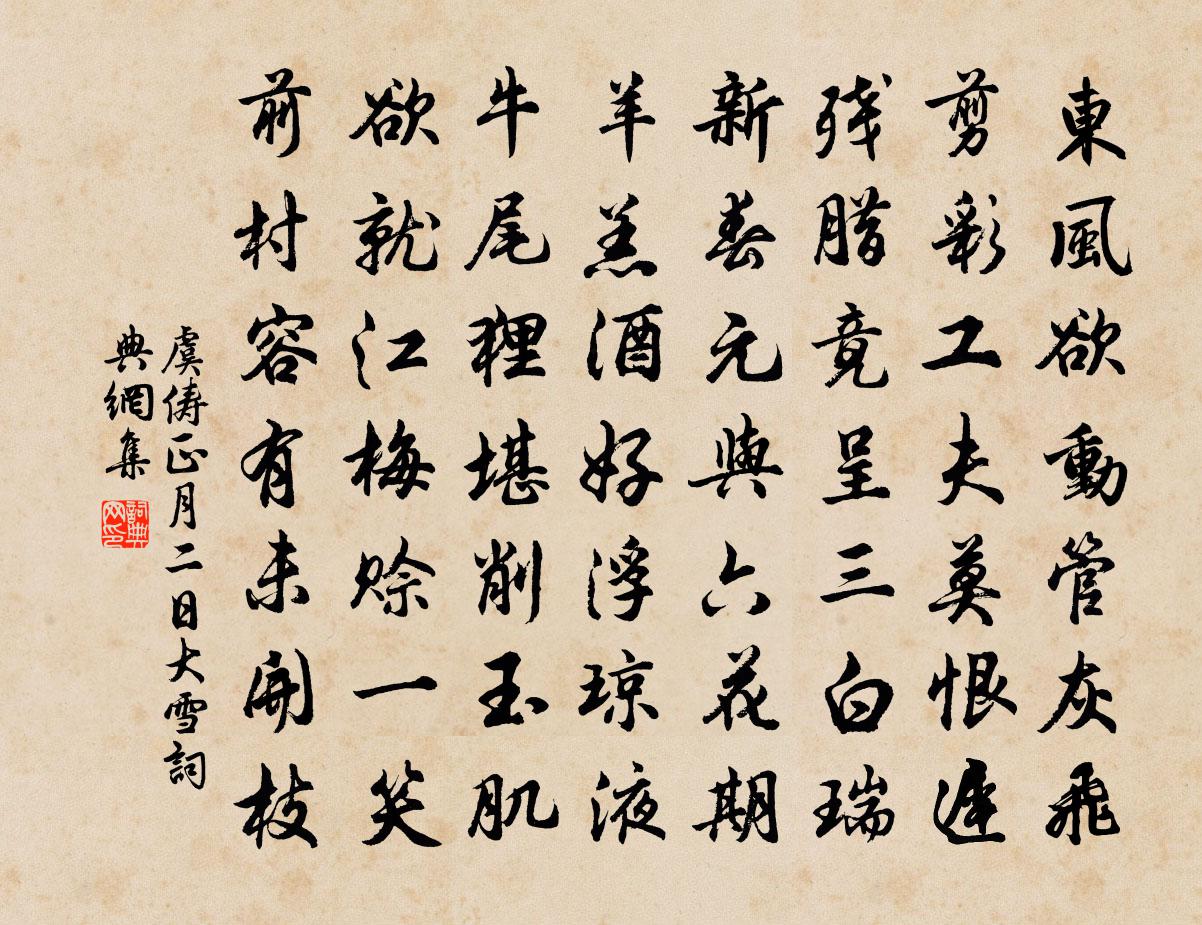 東風欲動管灰飛
剪彩工夫莫恨遲
残腊竟呈三白瑞
新春元與六花期
羊羔酒好浮琼液
牛尾狸堪削玉肌
欲就江梅赊一笑
前村容有未開枝
虞俦正月二日大雪詞
典網集
詞典网印